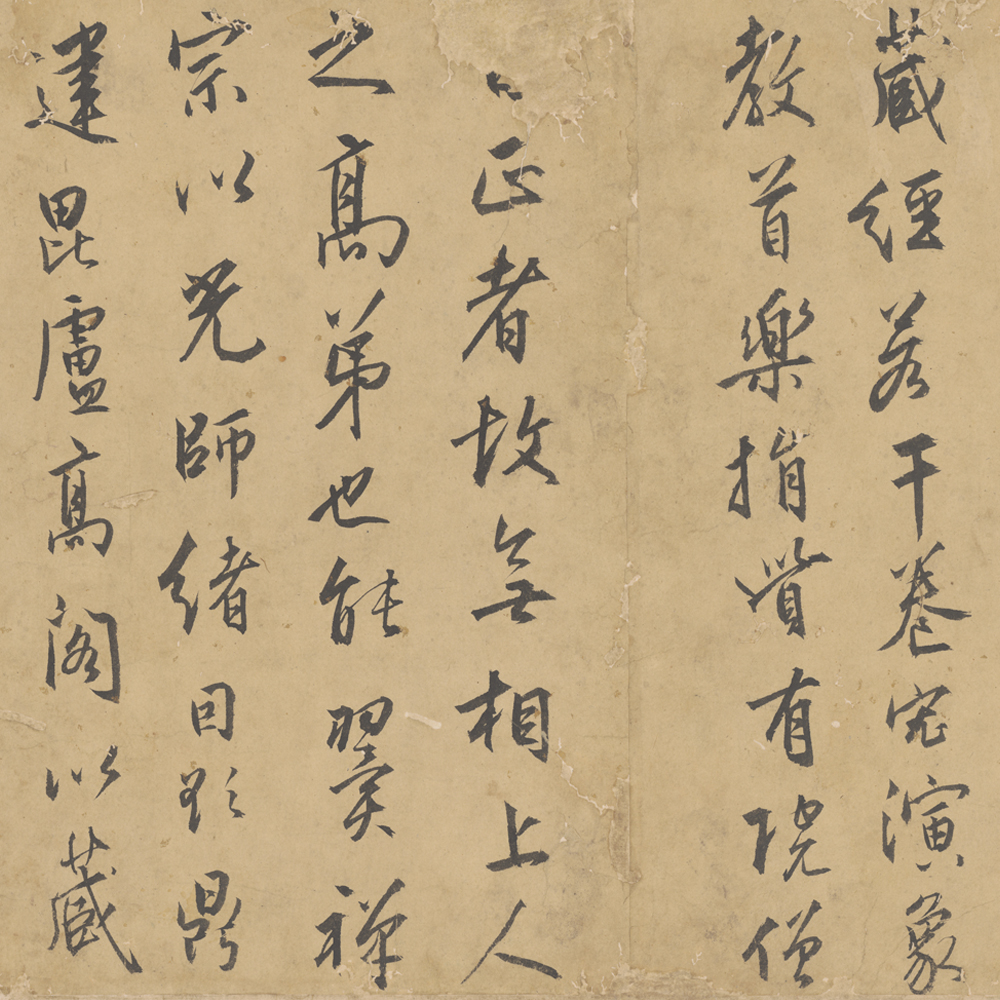 藏經若干卷宏演象
教首樂捐貲有院僧
正者故無相上人
之高弟也能翼禪
宗以光師緒日欲鼎
建毘盧高閣以藏